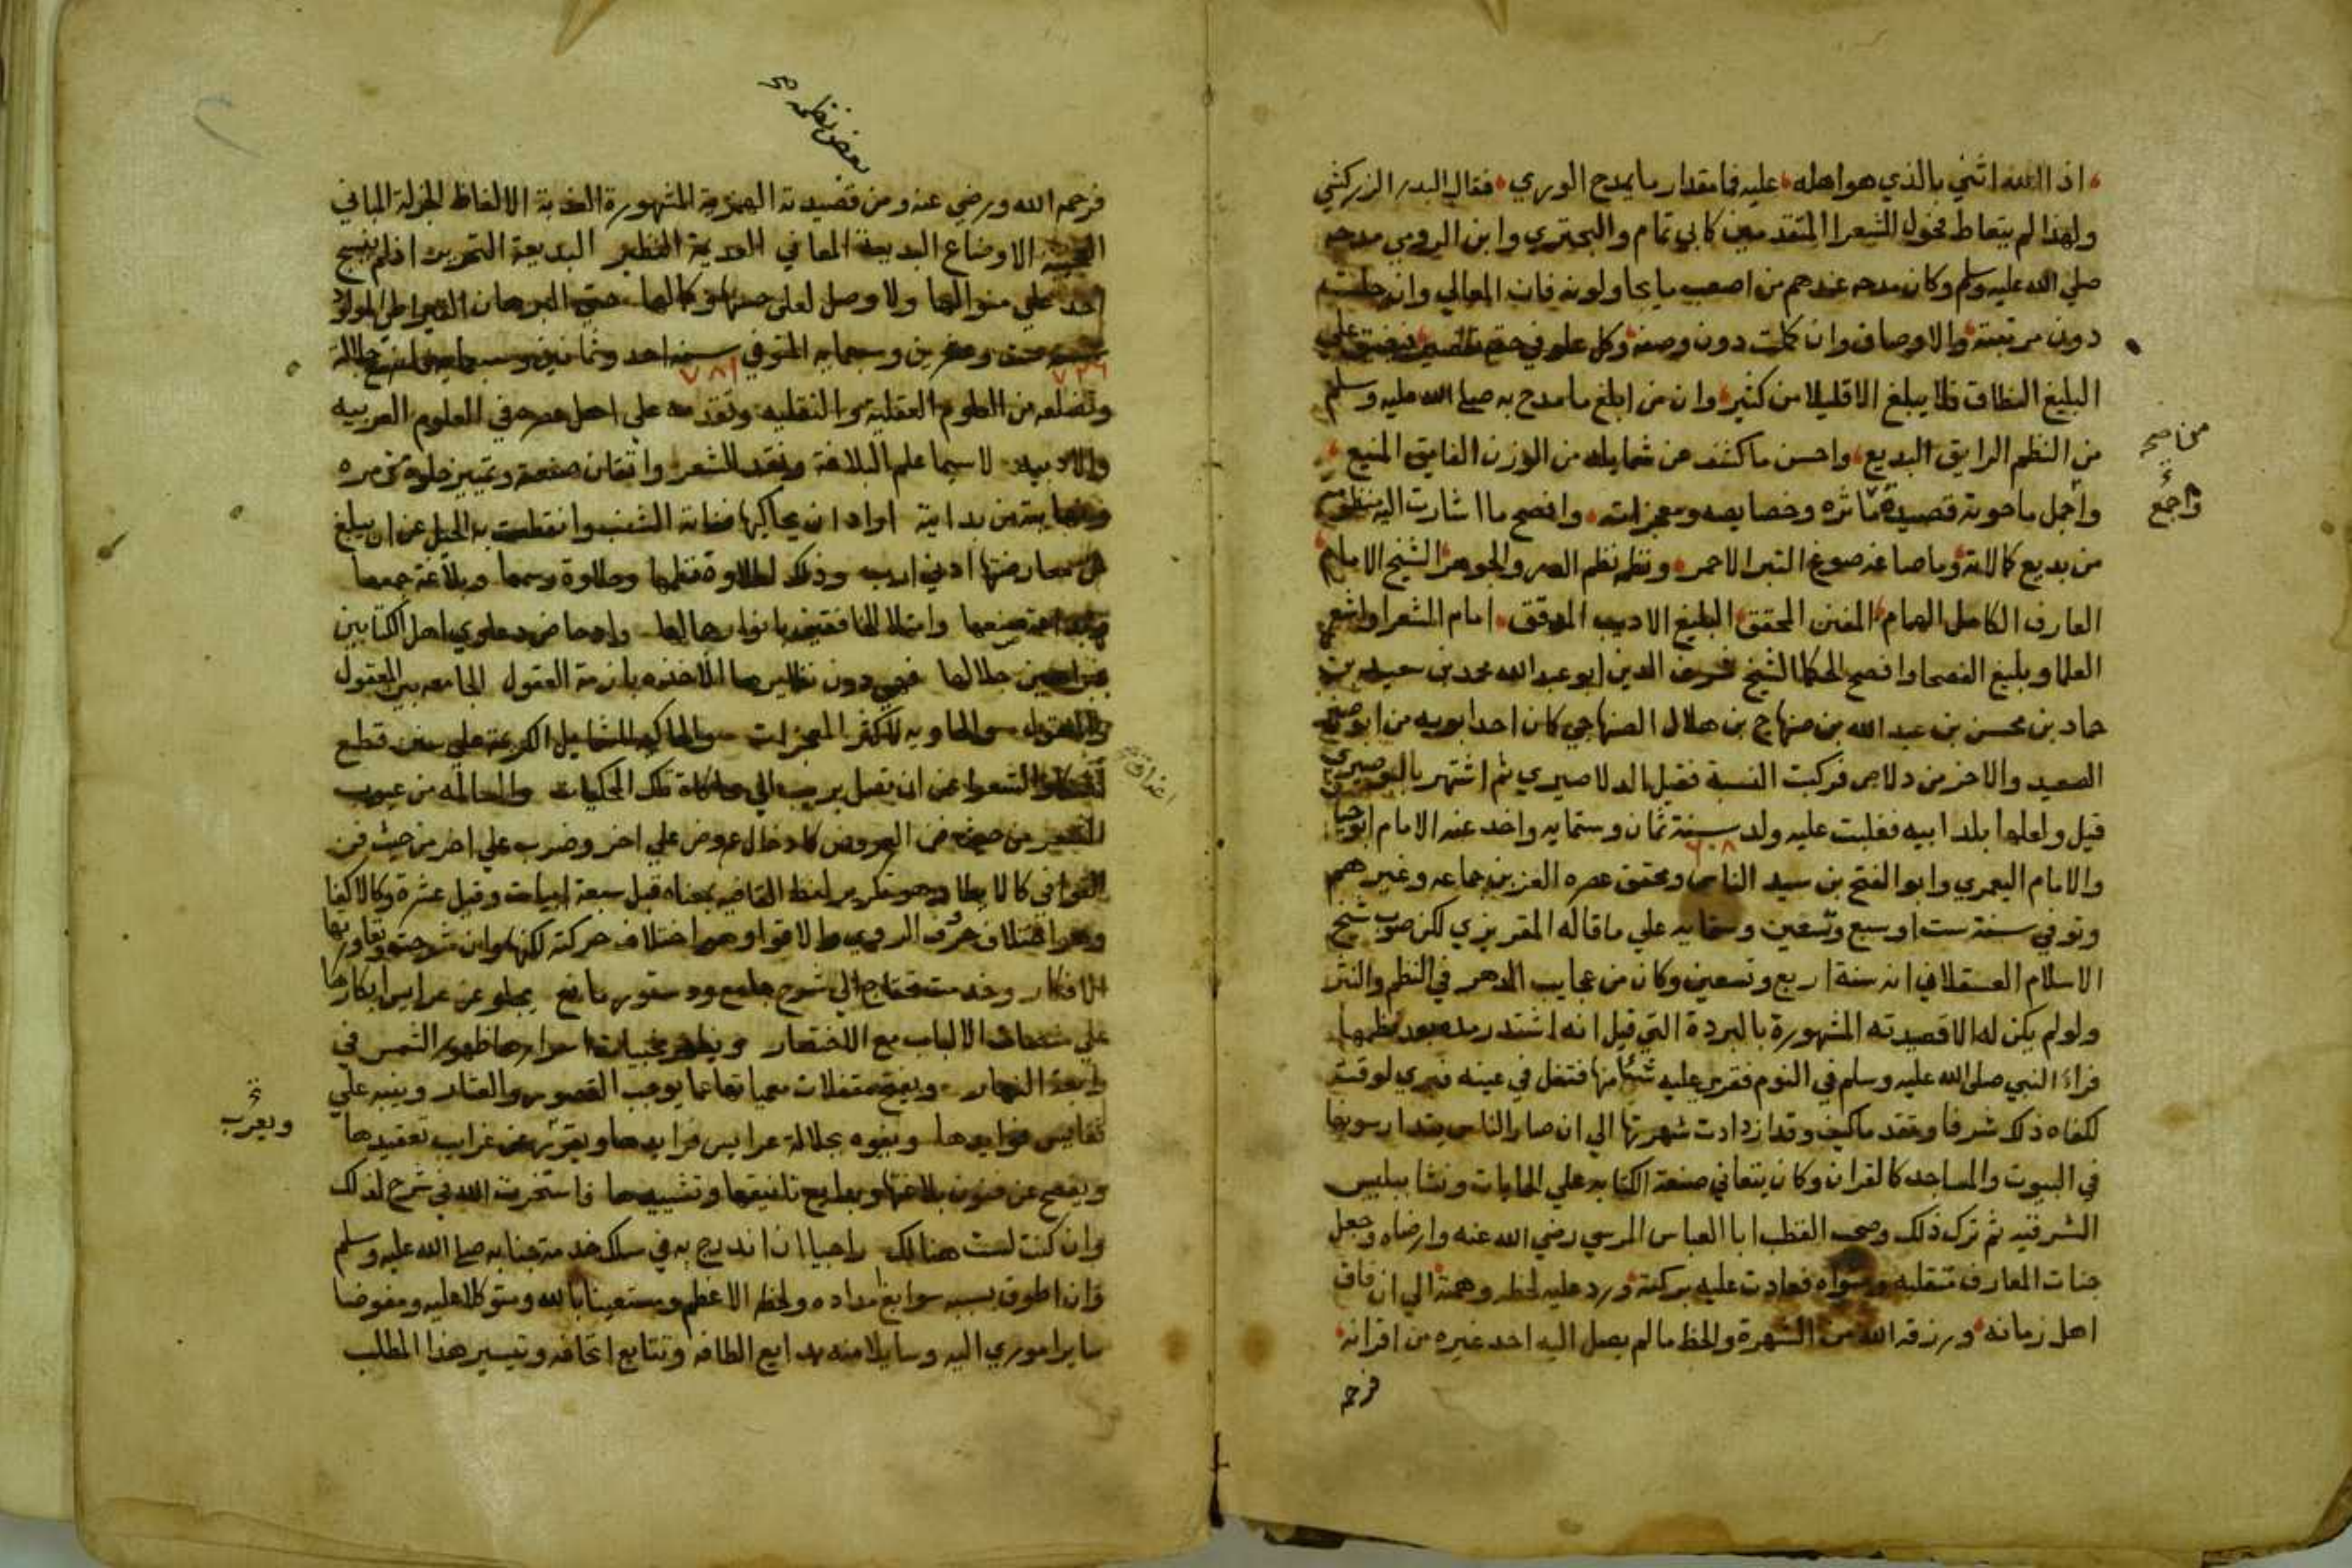 اذا الله اثني بالذي هو اهله عليه فما مقدار ما يمدح الوري فقال البدر الزركشي
ولهذا لم يتعاط فحول الشعرا المتقدمين كابي تمام والبحتري وابن الرومي مدحه
صلي الله عليه وسلم وكان مدحه عندهم من اصعب ما يحاولونه فان المعالي وان جلت
دون مرتبته والاوصاف وان كملت دون وصفه وكل علو في حقه تقصير فيضيق علي
البليغ النطاق فلا يبلغ الا قليلا من كثير وان من ابلغ ما مدح به صلي الله عليه وسلم
من النظم الرايق البديع واحسن ما كشف عن شمايله من الوزن الفايق المنيع
واجمل ما حوته قصيدة مآثره وخصايصه ومعجزاته وافصح ما اشارت اليه منظومة
من بديع كمالاته وما صاغه صوغ التبر الاحمر ونظمه نظم الدر والجوهر الشيخ الامام
العارف الكامل الهمام المفنن المحقق البليغ الاديب المدقق امام الشعرا واشعر
العلما وبليغ الفصحا وافصح الحكما الشيخ شرف الدين ابو عبد الله محمد بن سعيد بن
حماد بن محسن بن عبد الله بن صنهاج بن هلال الصنهاجي كان احد ابويه من ابوصير
الصعيد والاخر من دلاص فركبت النسبة فقيل الدلاصيري ثم اشتهر بالبوصيري
قيل ولعلها بلد ابيه فغلبت عليه ولد سنة ثمان وستمايه واخذ عنه الامام ابو حيان
٦٠٨
والامام اليعمري وابو الفتح بن سيد الناس ومحقق عصره العز بن جماعه وغيرهم
وتوفي سنة ست او سبع وتسعين وستمايه علي ما قاله المقريزي لكن صوب شيخ
الاسلام العسقلاني انه سنة اربع وتسعين وكان من عجايب الدهر في النظم والنثر
ولو لم يكن له الا قصيدته المشهورة بالبردة التي قيل انه اشتد رمده بعد نظمها
فراي النبي صلي الله عليه وسلم في النوم فقري عليه شيئا منها فتفل في عينه فبري لوقته
لكفاه ذلك شرفا وتقدما كيف وقد ازدادت شهرتها الي ان صار الناس يتدارسونها
في البيوت والمساجد كالقران وكان يتعاني صنعة الكتابه علي الجبايات ونشا ببلبيس
الشرقيه ثم ترك ذلك وصحب القطب ابا العباس المرسي رضي الله عنه وارضاه وجعل
جنات المعارف متقلبه ومثواه فعادت عليه بركته ورد عليه لحظه وهمته الي ان فاق
اهل زمانه ورزقه الله من الشهرة والحظ ما لم يصل اليه احد غيره من اقرانه
فرحمه
صح
واجمع
بعض نظمه
فرحمه الله ورضي عنه ومن قصيدته الهمزية المشهورة العذبة الالفاظ الجزلة المباني
العجيبة الاوضاع البديعة المعاني العديمة النظير البديعة التحرير اذ لم ينسج
احد علي منوالها ولا وصل لعلي حسنها وكمالها حتي البرهان القيراطي المولود
وعشرين وسبعمايه المتوفي سنة احد وثمانين وسبعمايه جلالة
٧٢٦ ٧٨١
وتضلعه من العلوم العقلية والنقليه وتقدمه علي اهل عصره في العلوم العربيه
والادبيه لا سيما علم البلاغة ونقد الشعر واتقان صنعة وتمييز حلوه من مره
ونهايته من بداية اراد ان يحاكيها ففاته الشنب وانقطعت به الحيل عن ان يبلغ
من معارضتها ادني ارب وذلك لطلاوة نظمها وحلاوة رسمها وبلاغة جمعها
وبراعة صنعها وامتلا الخافقين بانوار جمالها وادحاض دعاوي اهل الكتابين
ببراهين جلالها فهي دون نظايرها الاخذه بازمة العقول الجامعه بين المعقول
والمنقول والحاويه لاكثر المعجزات والحاكيه للشمايل الكريمة علي سنن قطع
اعناق الشعرا عن ان تصل الي محاكاة تلك الحكايات والسالمه من عيوب
الشعر من حيث فن العروض كادخال عروض علي اخر وضرب علي اخر من حيث فن
القوافي كالايطا وهو تكرير لفظ القافيه بمعناه قبل سبعة ابيات وقيل عشرة وكالاكفا
وهو اختلاف حرف الروي والاقوا وهو اختلاف حركته لكنها وان شرحت وتعاورتها
الافكار وخدمت تحتاج الي شرح جامع ودستور مانع يجلو عن عرايس ابكارها
علي الالباب مع الاختصار ويظهر مخبيات اسرارها ظهور الشمس في
رابعة النهار ويفتح مقفلات معمياتها عما يوجب القصور والعثار وينبه علي
نفايس فوايدها وينوه بجلالة عرايس فرايدها ويعرب عن غرايب تعقيدها
ويفصح عن فنون بلاغتها وبدايع تلفيقها وتشبيهها فاستخرت الله في شرح لذلك
وان كنت لست هنالك راجيا ان اندرج به في سلك خدمة جنابه صلي الله عليه وسلم
وان اطوق بسببه سوابغ امداده ولحظه الاعظم ومستعينا بالله ومتوكلا عليه ومفوضا
ساير اموري اليه وسايلا منه بدايع الطافه وتتابع اتحافه وتيسير هذا المطلب
اعناق
ويعرب